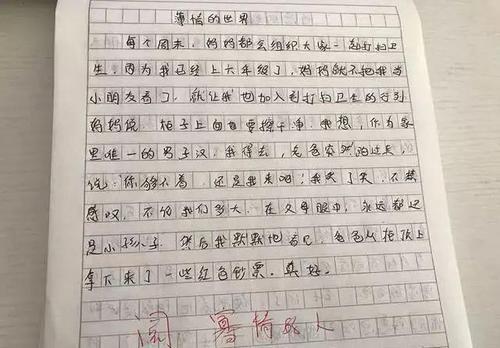 薄情的世界
每个周末，妈妈都会组织大家一起打扫卫
生，因为我已经上六年级了，妈妈就不把我当
小朋友看了，就让我也加入到打扫卫生的行列
妈妈说：柜子上面也要擦干净，我想，作为家
里唯一的男子汉，我得去，爸爸突然跑过来，
说：你够不着，还是我来吧！我笑了笑，不禁
感叹，不管我们多大，在父母眼中，永远都还
是小孩子。然后我默默地看见，爸爸从柜顶上
拿下来了一些红色钞票。真好。
阅，